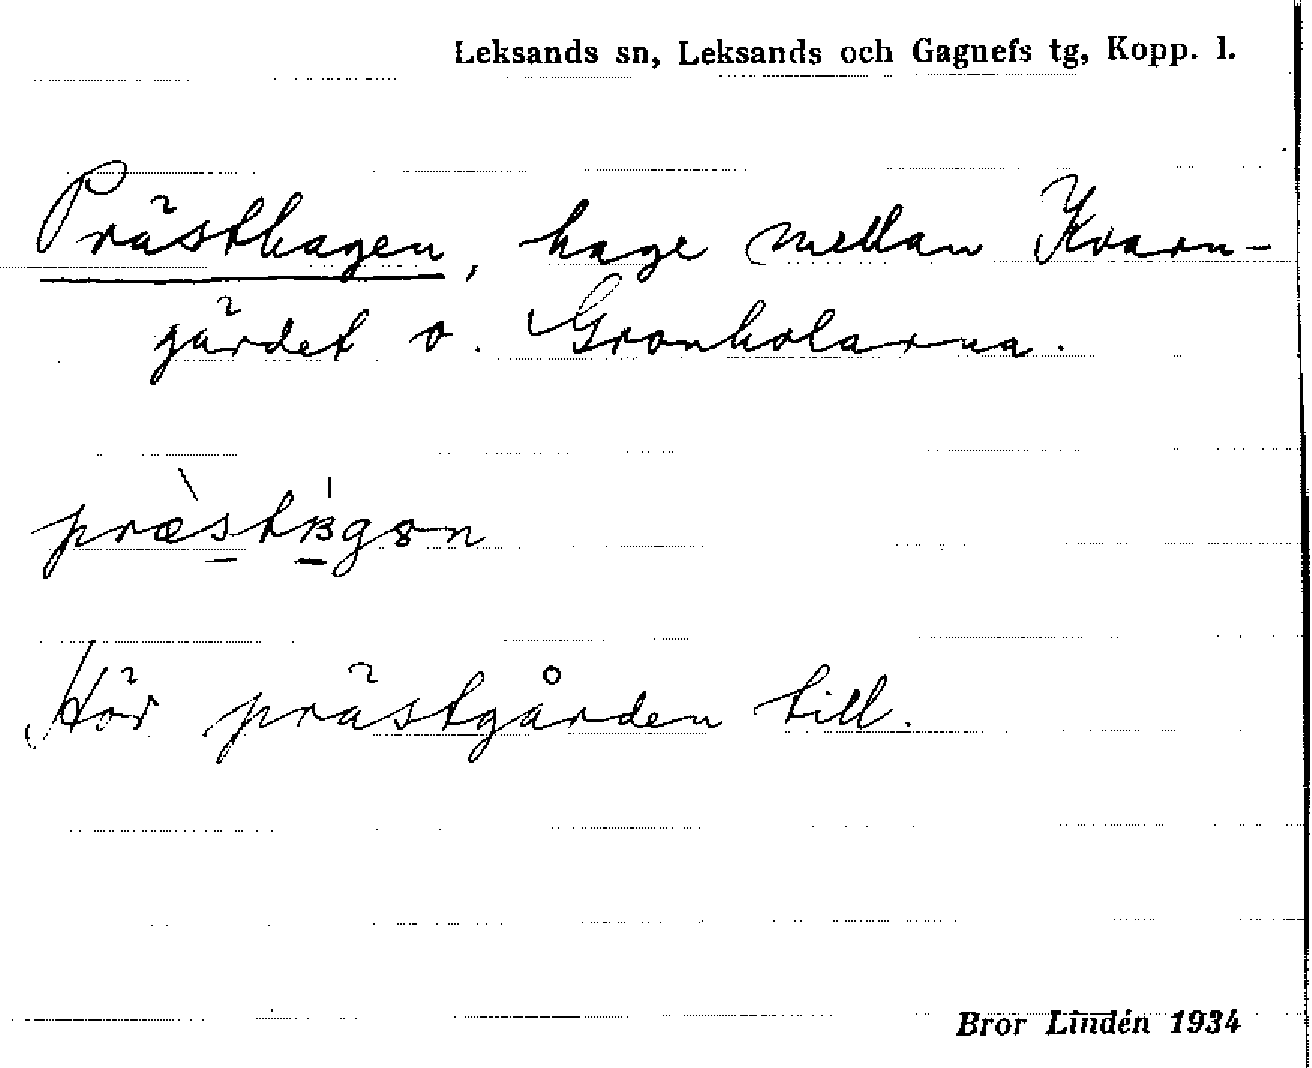 Leksands sn, Leksands och Gagnefs tg, Kopp. l.
Prästhagen, hage mellan Kvarn-
gärdet o. Gronholarna.
Hör prästgården till.
Bror Lindén 1934